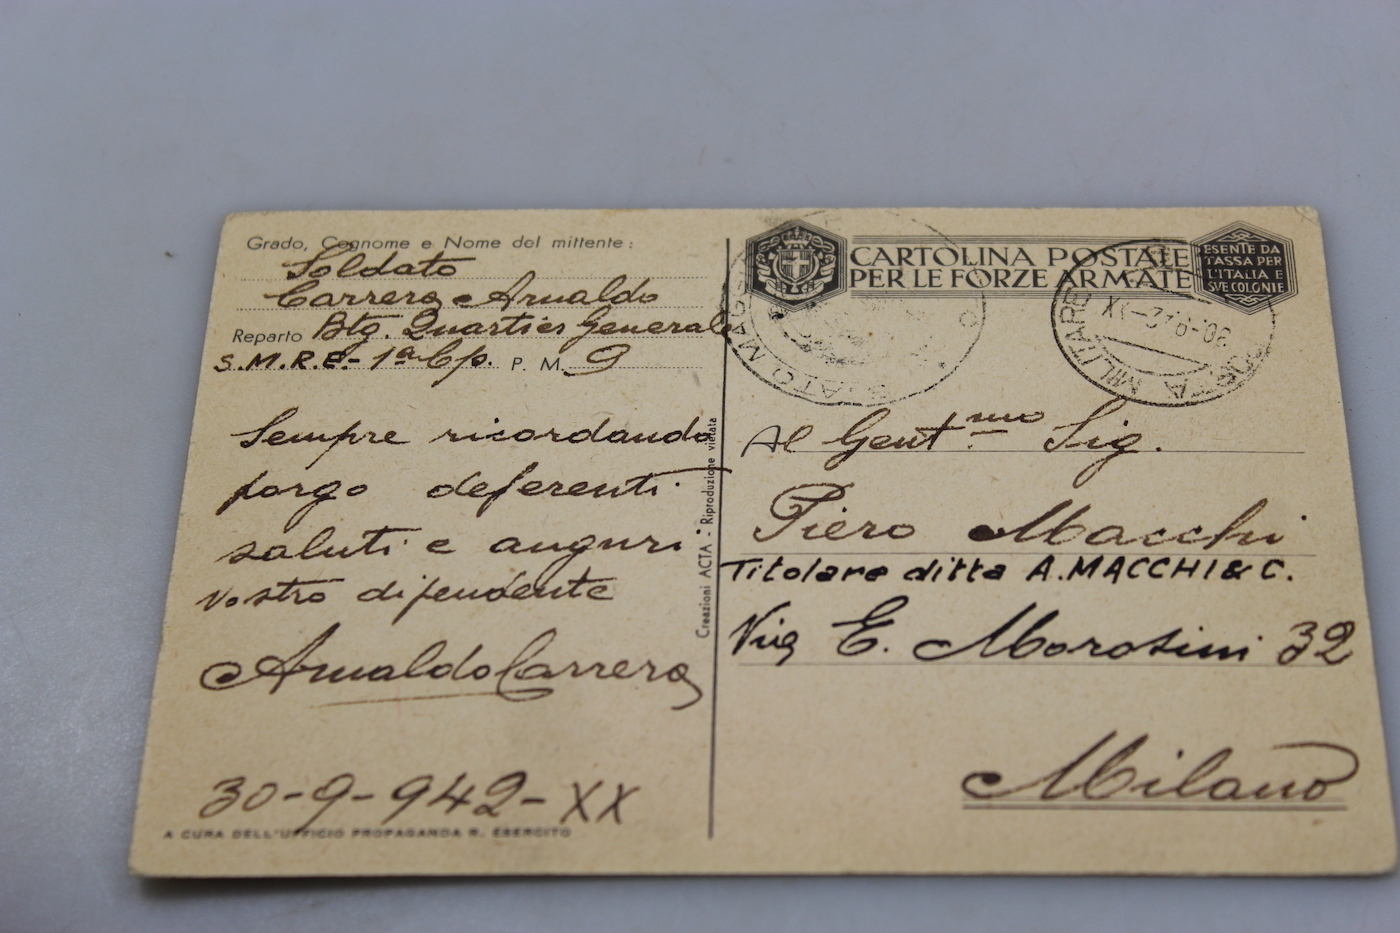 Grado, Cognome e Nome del mittente:
Soldato
Carrera Arnaldo
Reparto Btg. Quartier Generale
S.M.R.E. - 1ª Cp. P. M. 9
Sempre ricordando
porgo deferenti
saluti e auguri
vostro dipendente
Arnaldo Carrera
30-9-942-XX
A CURA DELL'UFFICIO PROPAGANDA R. ESERCITO
Creazioni ACTA - Riproduzione vietata
CARTOLINA POSTALE
PER LE FORZE ARMATE
ESENTE DA
TASSA PER
L'ITALIA E
SUE COLONIE
POSTA MILITARE
Al Gent.mo Sig.
Piero Macchi
Titolare ditta A. MACCHI & C.
Via E. Morosini 32
Milano